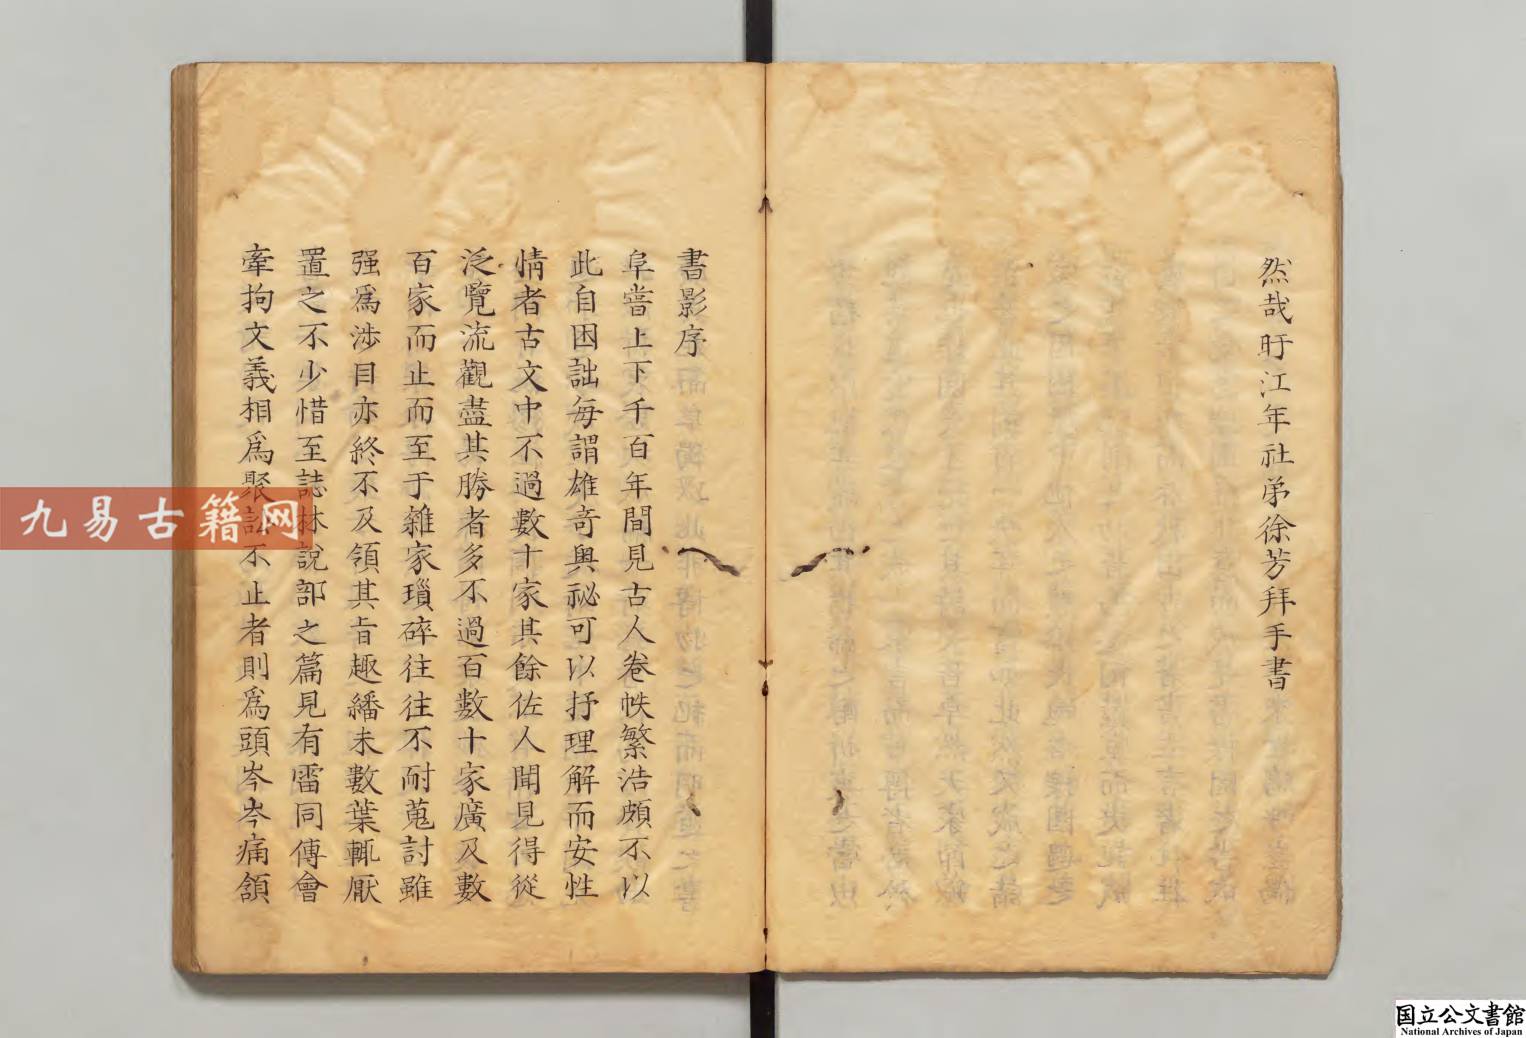 然哉盱江年社弟徐芳拜手書
書影序
阜嘗上下千百年間見古人卷帙繁浩頗不以
此自困詘每謂雄奇奧祕可以抒理解而安性
情者古文中不過數十家其餘佐人聞見得從
泛覽流觀盡其勝者多不過百數十家廣及數
百家而止而至于雜家瑣碎往往不耐蒐討雖
强爲涉目亦終不及領其旨趣繙未數葉輒厭
置之不少惜至誌林說部之篇見有雷同傳會
牽拘文義相爲聚訟不止者則爲頭岑岑痛頷
九易古籍网
国立公文書館
National Archives of Japan